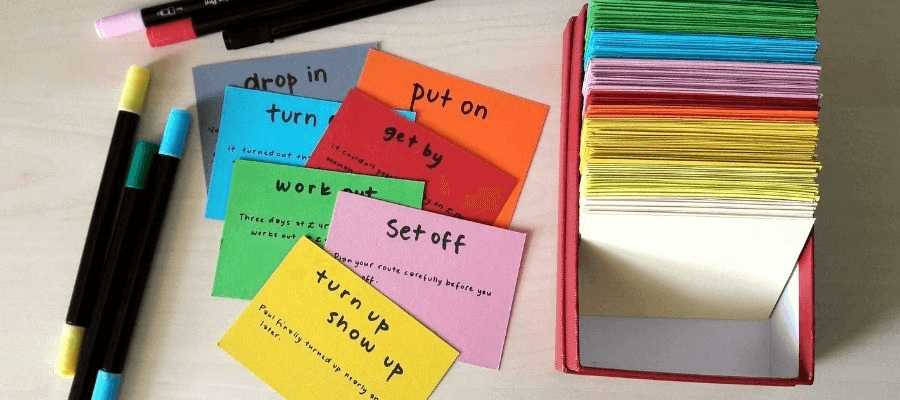 drop in
put on
turn
It turned out th
get by
It couldn't
work out
Three days at £ 45
works out at £
Set off
Plan your route carefully before you
off.
turn up
show up
Paul finally turned up nearly an
later.